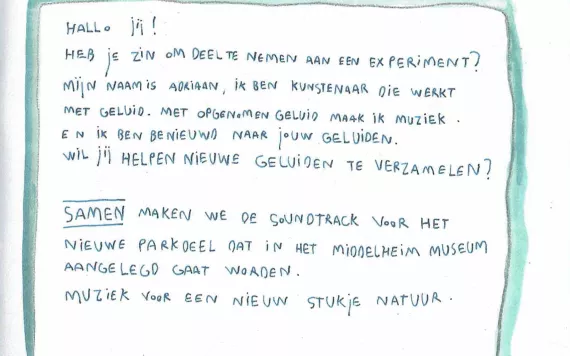 HALLO JIJ!
HEB JE ZIN OM DEEL TE NEMEN AAN EEN EXPERIMENT?
MIJN NAAM IS ADRIAAN, IK BEN KUNSTENAAR DIE WERKT
MET GELUID. MET OPGENOMEN GELUID MAAK IK MUZIEK.
EN IK BEN BENIEUWD NAAR JOUW GELUIDEN.
WIL JIJ HELPEN NIEUWE GELUIDEN TE VERZAMELEN?
SAMEN MAKEN WE DE SOUNDTRACK VOOR HET
NIEUWE PARKDEEL DAT IN HET MIDDELHEIM MUSEUM
AANGELEGD GAAT WORDEN.
MUZIEK VOOR EEN NIEUW STUKJE NATUUR.